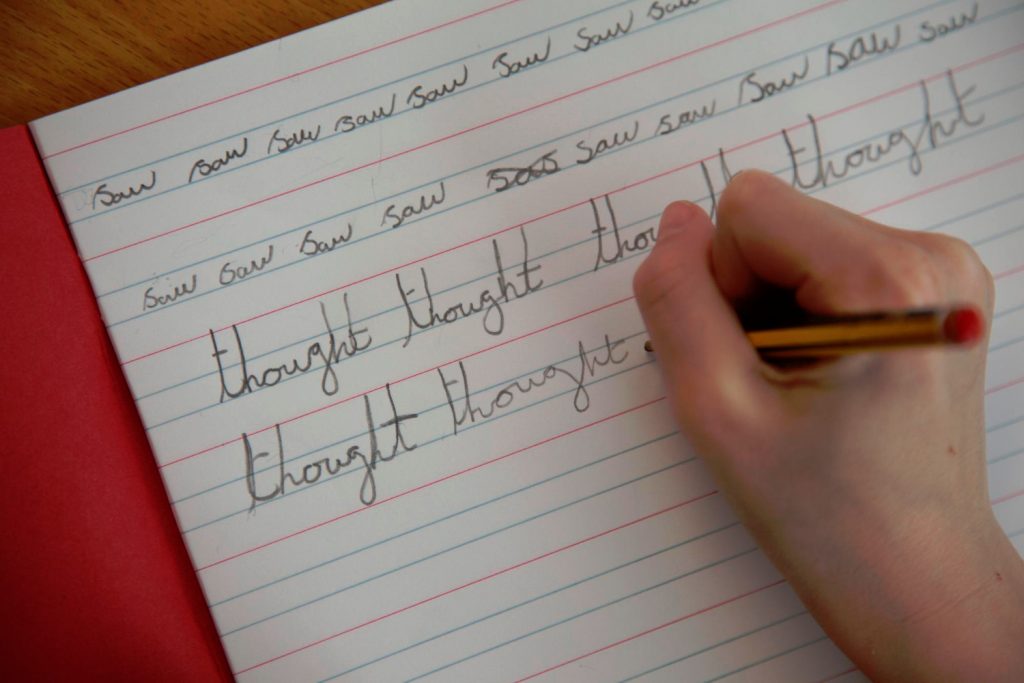 saw saw saw saw saw saw saw saw
saw saw saw saw saw saw saw saw saw
thought thought thought thought
thought thought